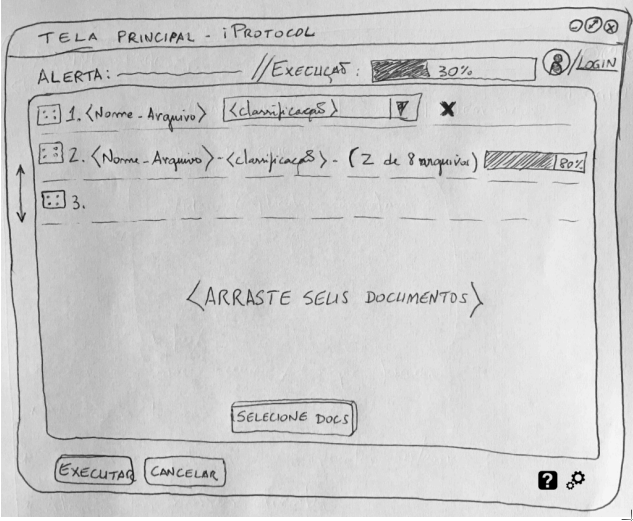 TELA PRINCIPAL - iPROTOCOL
ALERTA: //EXECUÇÃO: 30% /LOGIN
1. <Nome-Arquivo> <classificação> X
2. <Nome-Arquivo>-<classificação>- (2 de 8 arquivos) 80%
3.
<ARRASTE SEUS DOCUMENTOS>
SELECIONE DOCS
EXECUTAR CANCELAR ?